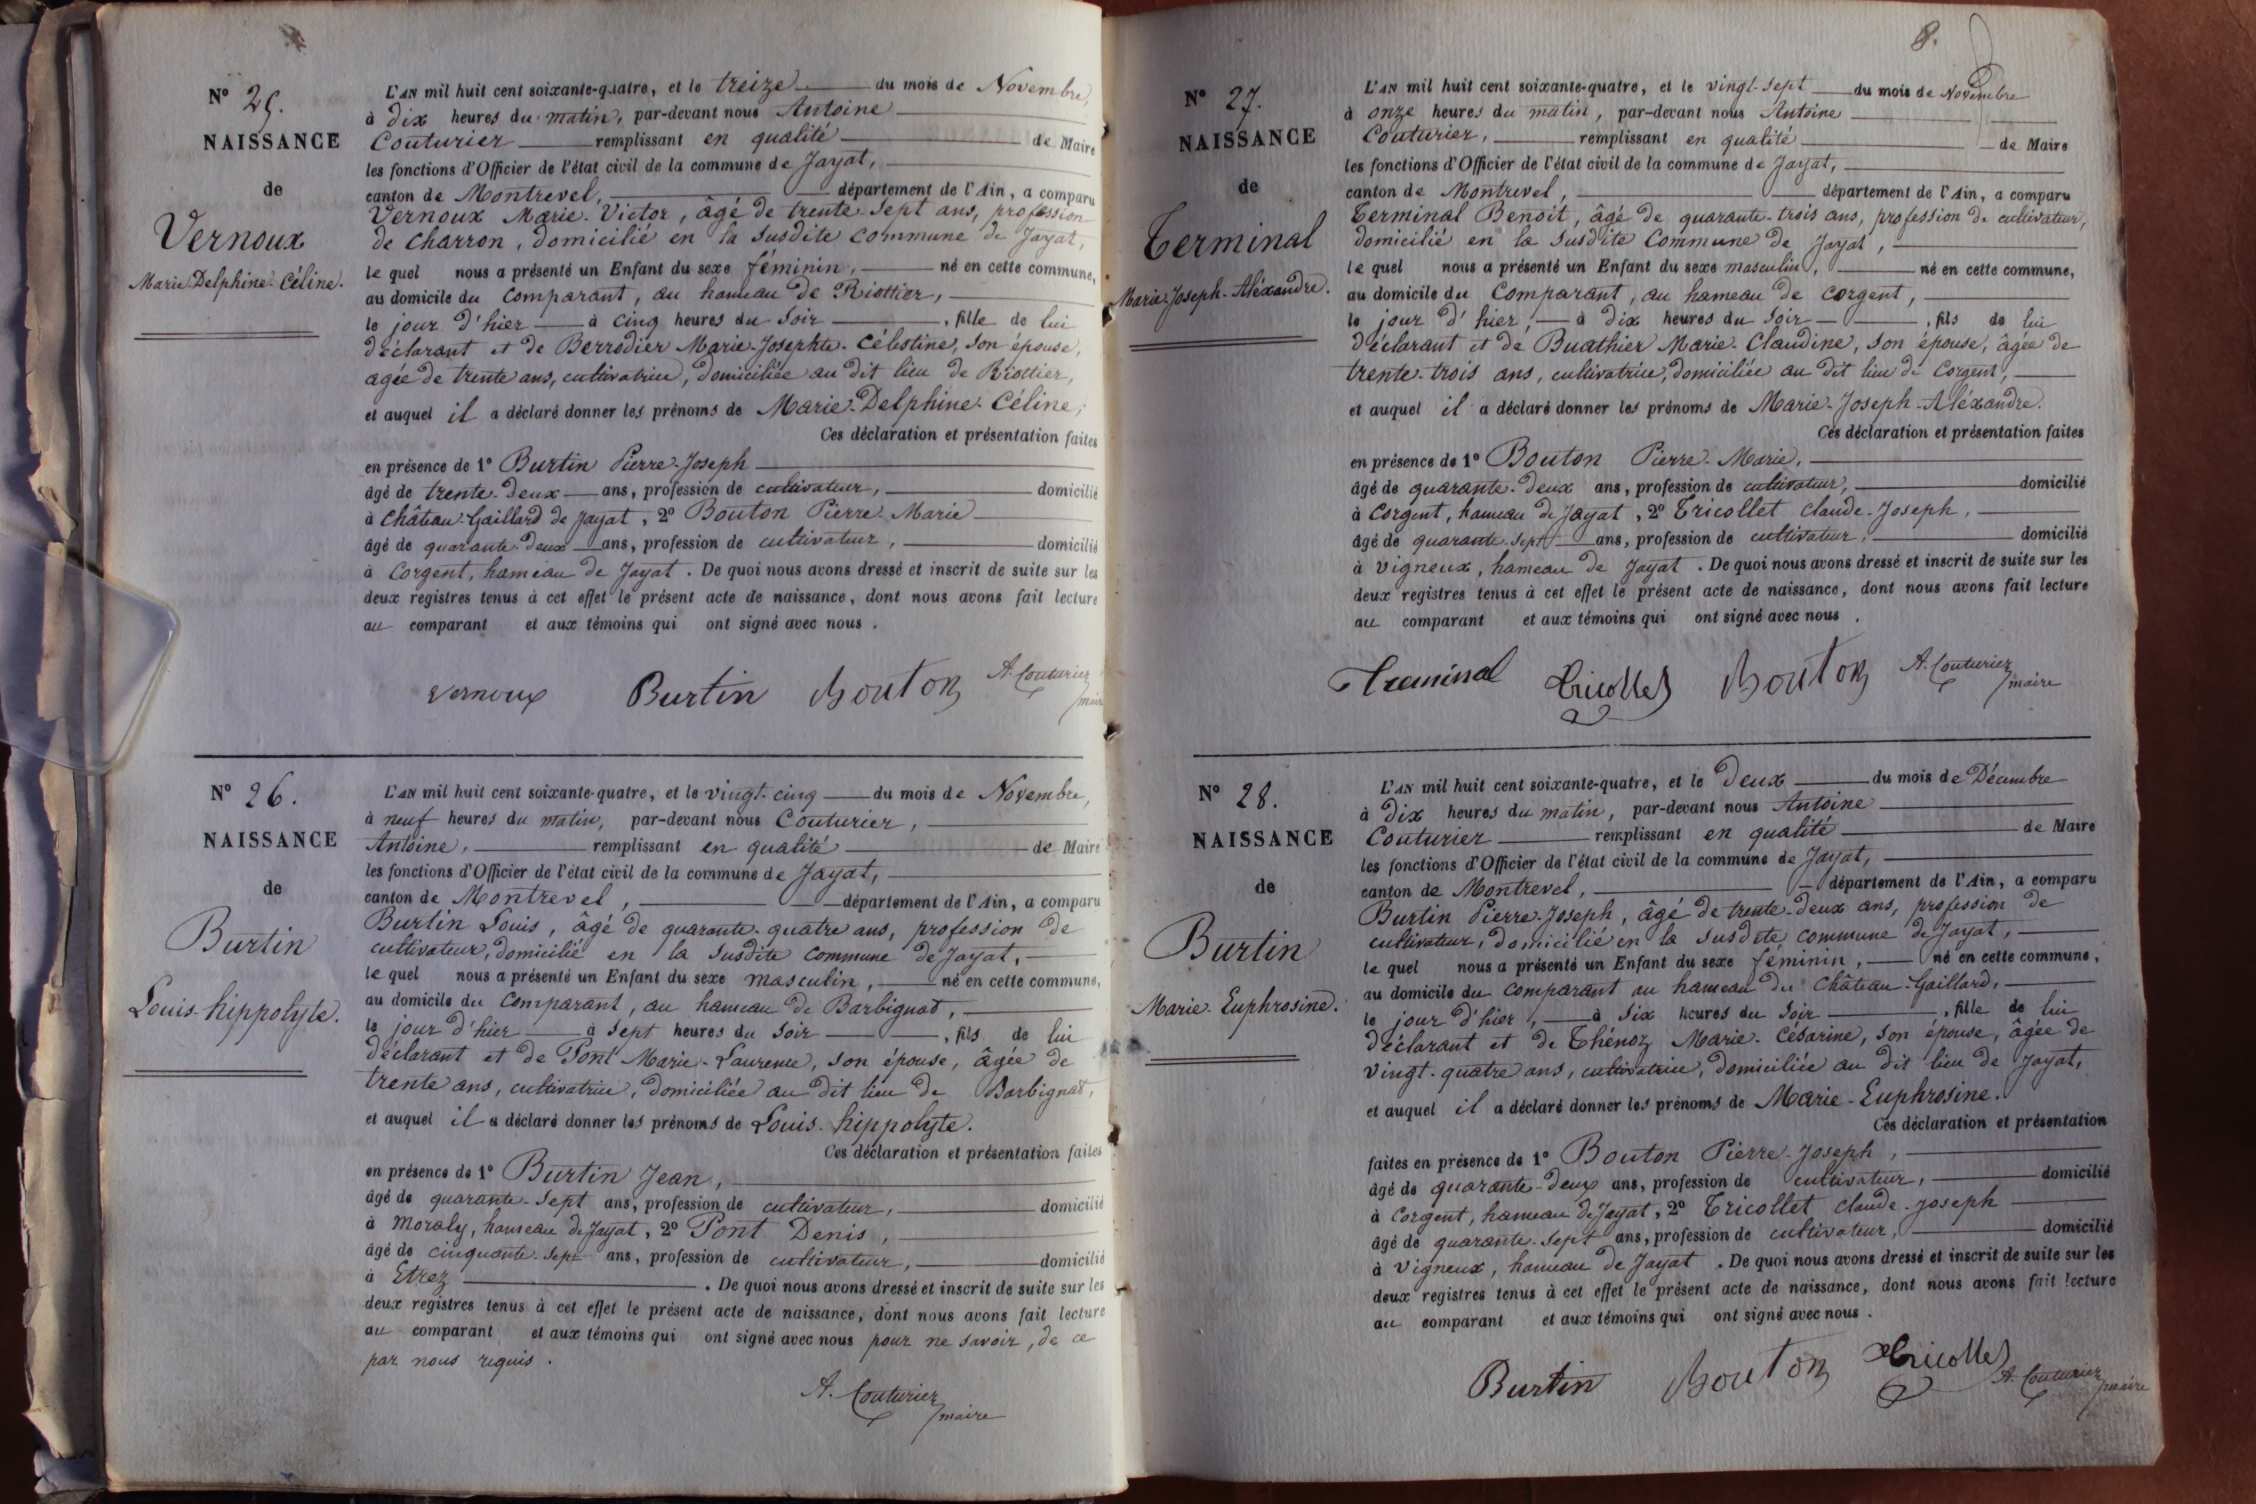 N° 25.
NAISSANCE
de
Vernoux
Marie-Delphine-Céline.
L'AN mil huit cent soixante-quatre, et le treize du mois de Novembre,
à dix heures du matin, par-devant nous Antoine
Couturier remplissant en qualité de Maire
les fonctions d'Officier de l'état civil de la commune de Jayat,
canton de Montrevel, département de l'Ain, a comparu
Vernoux Marie-Victor, âgé de trente-sept ans, profession
de charron, domicilié en la susdite commune de Jayat,
le quel nous a présenté un Enfant du sexe féminin, né en cette commune,
au domicile du comparant, au hameau de Riottier,
le jour d'hier à cinq heures du soir, fille de lui
déclarant et de Berrodier Marie-Josephte-Célestine, son épouse,
agée de trente ans, cultivatrice, domiciliée au dit lieu de Riottier,
et auquel il a déclaré donner les prénoms de Marie-Delphine-Céline,
Ces déclaration et présentation faites
en présence de 1° Burtin Pierre-Joseph
âgé de trente-deux ans, profession de cultivateur, domicilié
à Château-Gaillard de Jayat, 2° Bouton Pierre-Marie
âgé de quarante-deux ans, profession de cultivateur, domicilié
à Corgent, hameau de Jayat. De quoi nous avons dressé et inscrit de suite sur les
deux registres tenus à cet effet le présent acte de naissance, dont nous avons fait lecture
au comparant et aux témoins qui ont signé avec nous.
Vernoux Burtin Bouton A. Couturier
maire
N° 26.
NAISSANCE
de
Burtin
Louis-hippolyte.
L'AN mil huit cent soixante-quatre, et le vingt-cinq du mois de Novembre,
à neuf heures du matin, par-devant nous Couturier,
Antoine, remplissant en qualité de Maire
les fonctions d'Officier de l'état civil de la commune de Jayat,
canton de Montrevel, département de l'Ain, a comparu
Burtin Louis, âgé de quarante-quatre ans, profession de
cultivateur, domicilié en la susdite commune de Jayat,
le quel nous a présenté un Enfant du sexe masculin, né en cette commune,
au domicile du comparant, au hameau de Barbignat,
le jour d'hier à sept heures du soir, fils de lui
déclarant et de Pont Marie-Laurence, son épouse, âgée de
trente ans, cultivatrice, domiciliée au dit lieu de Barbignat,
et auquel il a déclaré donner les prénoms de Louis-hippolyte.
Ces déclaration et présentation faites
en présence de 1° Burtin Jean,
âgé de quarante-sept ans, profession de cultivateur, domicilié
à Moraly, hameau de Jayat, 2° Pont Denis,
âgé de cinquante-sept ans, profession de cultivateur, domicilié
à Etrez. De quoi nous avons dressé et inscrit de suite sur les
deux registres tenus à cet effet le présent acte de naissance, dont nous avons fait lecture
au comparant et aux témoins qui ont signé avec nous pour ne savoir, de ce
par nous requis.
A. Couturier
maire
8.
N° 27.
NAISSANCE
de
Terminal
Marie-Joseph-Aléxandre.
L'AN mil huit cent soixante-quatre, et le vingt-sept du mois de Novembre
à onze heures du matin, par-devant nous Antoine
Couturier, remplissant en qualité de Maire
les fonctions d'Officier de l'état civil de la commune de Jayat,
canton de Montrevel, département de l'Ain, a comparu
Terminal Benoit, âgé de quarante-trois ans, profession de cultivateur,
domicilié en la susdite commune de Jayat,
le quel nous a présenté un Enfant du sexe masculin, né en cette commune,
au domicile du comparant, au hameau de Corgent,
le jour d'hier, à dix heures du soir, fils de lui
déclarant et de Buathier Marie-Claudine, son épouse, âgée de
trente-trois ans, cultivatrice, domiciliée au dit lieu de Corgent,
et auquel il a déclaré donner les prénoms de Marie-Joseph-Aléxandre.
Ces déclaration et présentation faites
en présence de 1° Bouton Pierre-Marie,
âgé de quarante-deux ans, profession de cultivateur, domicilié
à Corgent, hameau de Jayat, 2° Tricollet Claude-Joseph,
âgé de quarante-sept ans, profession de cultivateur, domicilié
à Vigneux, hameau de Jayat. De quoi nous avons dressé et inscrit de suite sur les
deux registres tenus à cet effet le présent acte de naissance, dont nous avons fait lecture
au comparant et aux témoins qui ont signé avec nous.
Terminal Tricollet Bouton A. Couturier
maire
N° 28.
NAISSANCE
de
Burtin
Marie-Euphrosine.
L'AN mil huit cent soixante-quatre, et le Deux du mois de Décembre
à dix heures du matin, par-devant nous Antoine
Couturier remplissant en qualité de Maire
les fonctions d'Officier de l'état civil de la commune de Jayat,
canton de Montrevel, département de l'Ain, a comparu
Burtin Pierre-Joseph, âgé de trente-deux ans, profession de
cultivateur, domicilié en la susdite commune de Jayat,
le quel nous a présenté un Enfant du sexe féminin, né en cette commune,
au domicile du comparant au hameau du Château-Gaillard,
le jour d'hier, à six heures du soir, fille de lui
déclarant et de Thénoz Marie-Césarine, son épouse, âgée de
vingt-quatre ans, cultivatrice, domiciliée au dit lieu de Jayat,
et auquel il a déclaré donner les prénoms de Marie-Euphrosine.
Ces déclaration et présentation
faites en présence de 1° Bouton Pierre-Joseph,
âgé de quarante-deux ans, profession de cultivateur, domicilié
à Corgent, hameau de Jayat, 2° Tricollet Claude-Joseph
âgé de quarante-sept ans, profession de cultivateur, domicilié
à Vigneux, hameau de Jayat. De quoi nous avons dressé et inscrit de suite sur les
deux registres tenus à cet effet le présent acte de naissance, dont nous avons fait lecture
au comparant et aux témoins qui ont signé avec nous.
Burtin Bouton Tricollet A. Couturier
maire